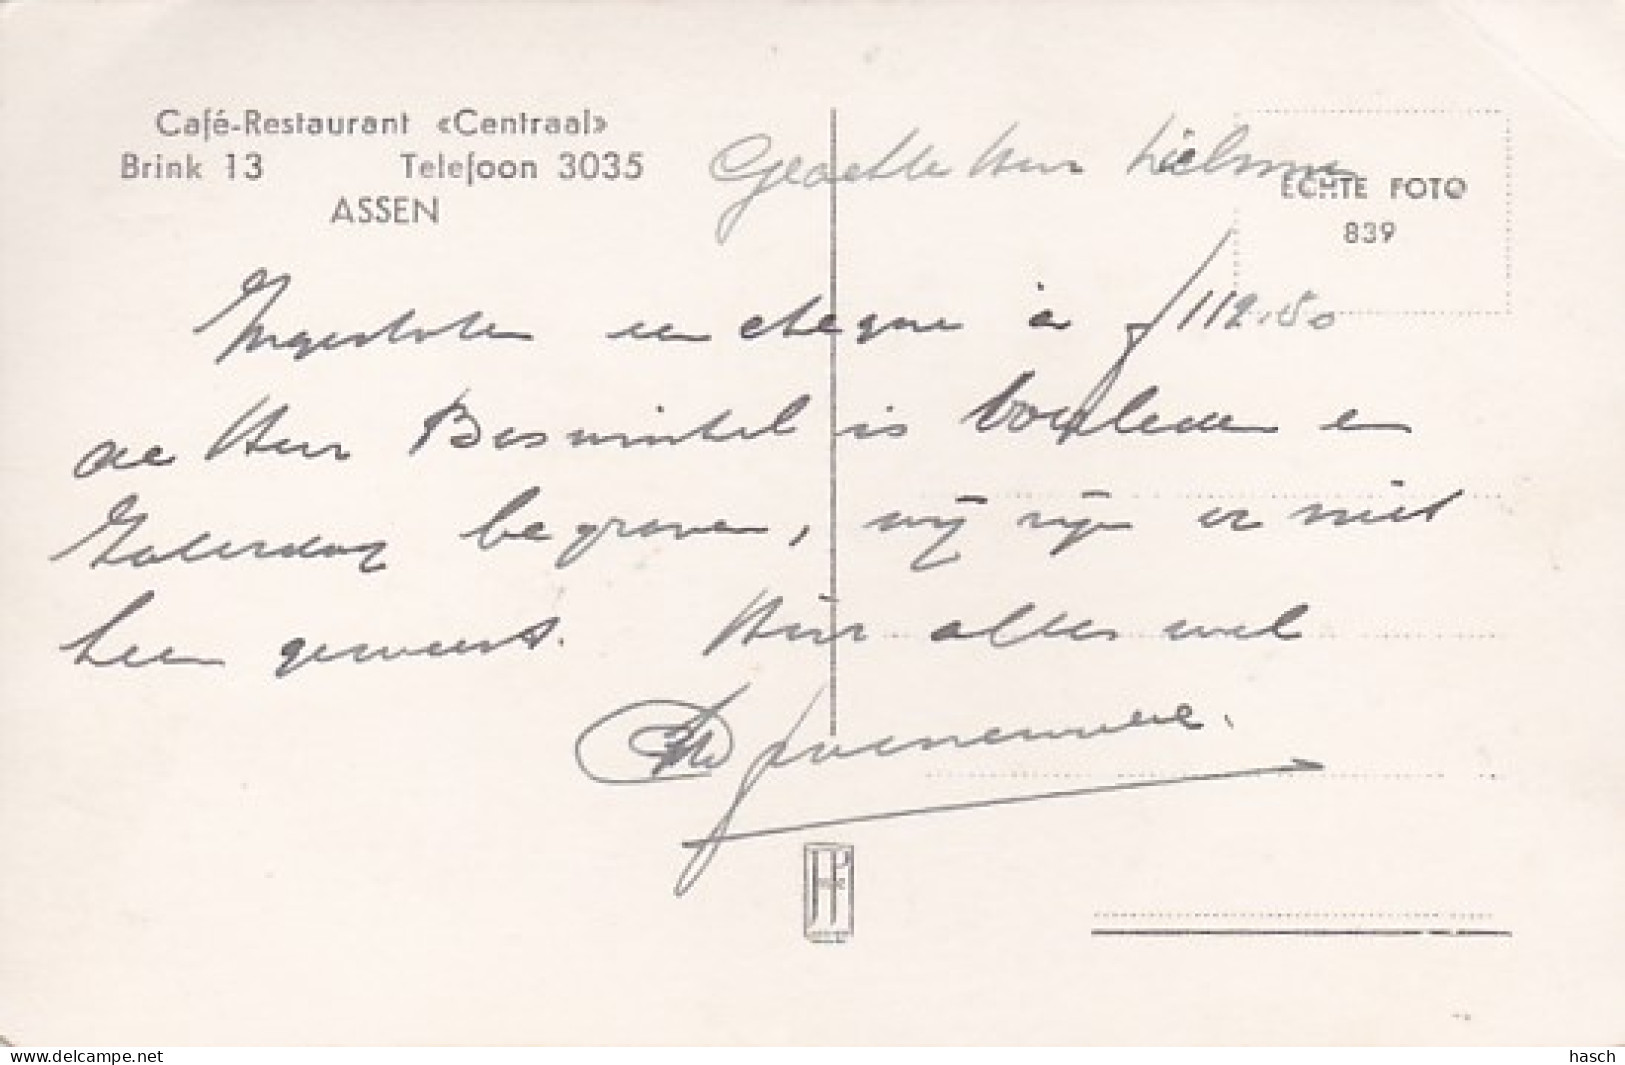 Café-Restaurant «Centraal»
Brink 13 Telefoon 3035
ASSEN
ECHTE FOTO
839
Geachte Heer
Ingesloten een cheque à ƒ 112.50
de Heer Boswinkel is overleden en
Zaterdag begraven, wij zijn er niet
heen geweest. Hier alles wel
www.delcampe.net
hasch